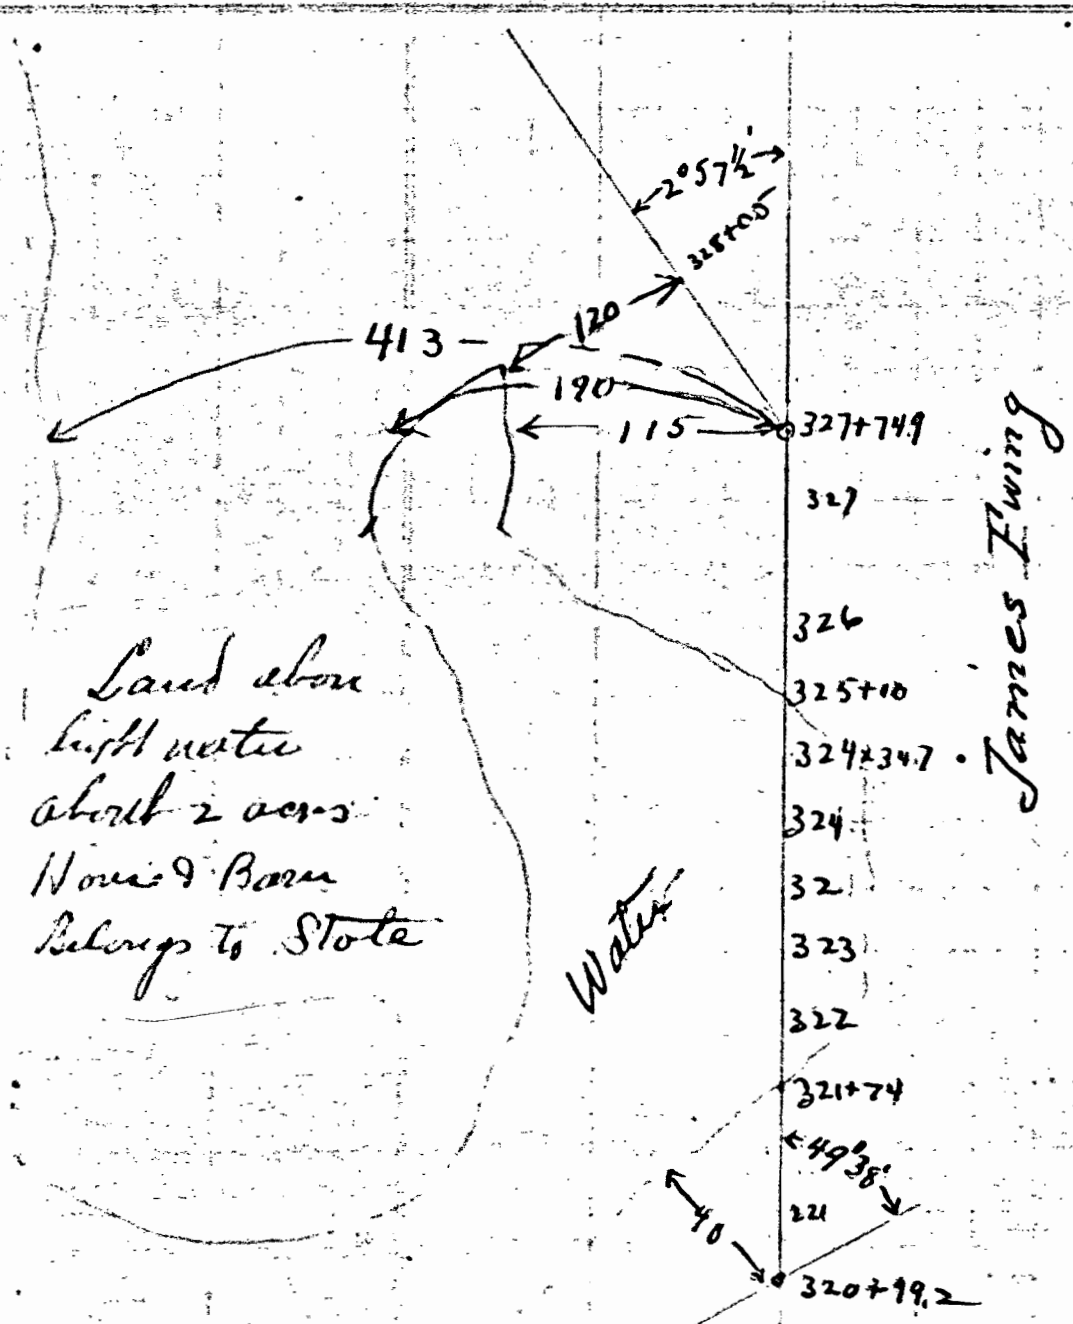 2°57½'
328+05
413
120
190
115
327+74.9
327
326
325+10
324+34.7
324
32
323
322
321+74
49°38'
221
40
320+99.2
James Ewing
Water
Land abov
high water
about 2 acres
House & Barn
Belongs To State